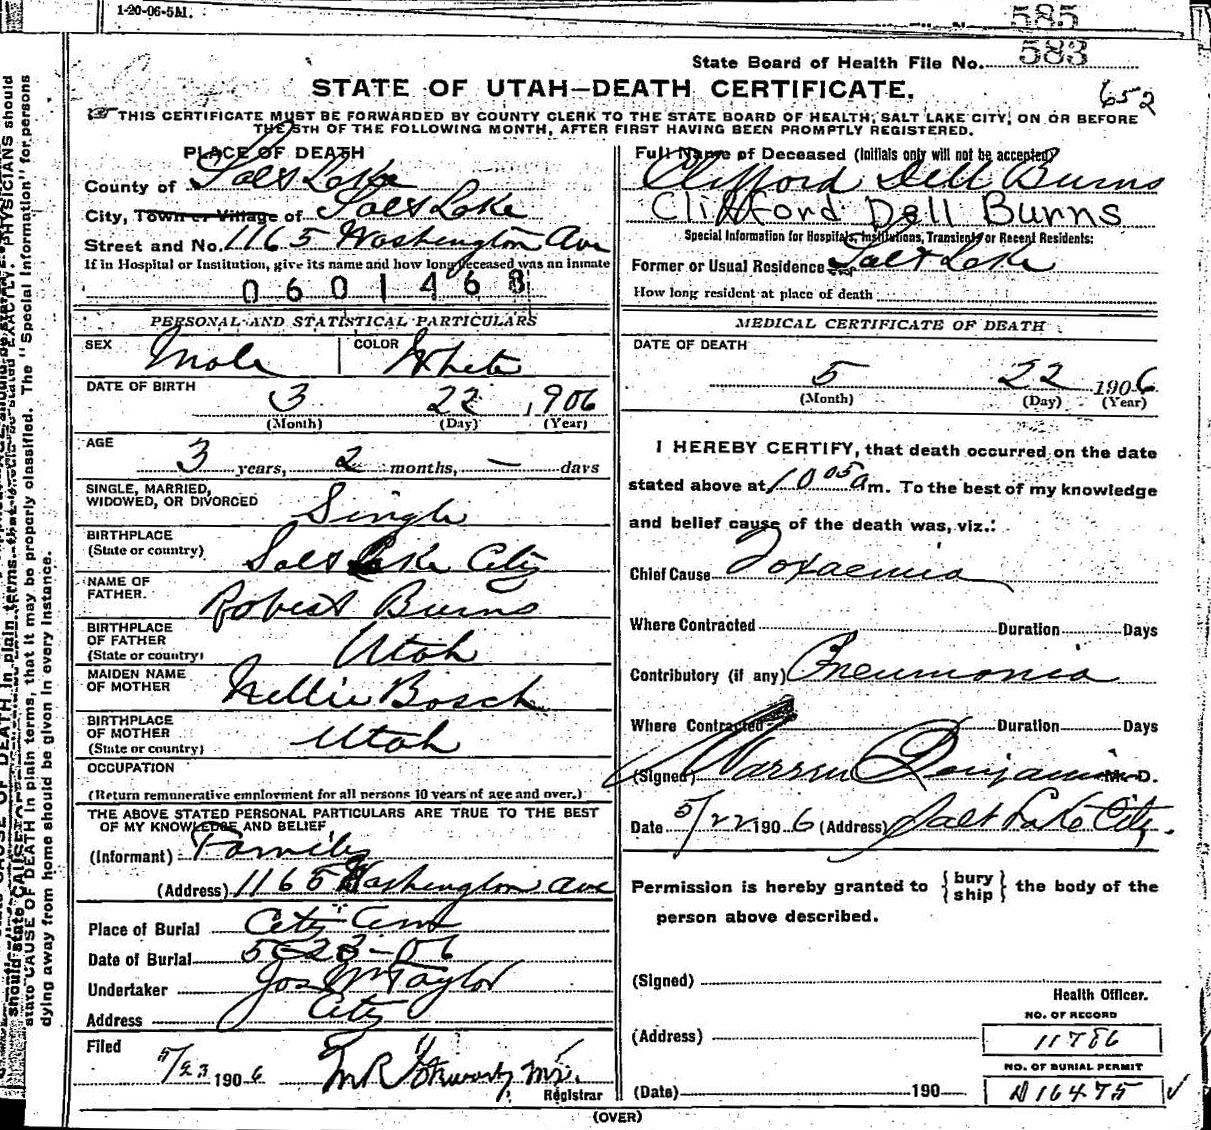 1-20-06-5M.
585
State Board of Health File No. 583
STATE OF UTAH—DEATH CERTIFICATE.
652
THIS CERTIFICATE MUST BE FORWARDED BY COUNTY CLERK TO THE STATE BOARD OF HEALTH, SALT LAKE CITY, ON OR BEFORE
THE 5TH OF THE FOLLOWING MONTH, AFTER FIRST HAVING BEEN PROMPTLY REGISTERED.
PLACE OF DEATH
County of Salt Lake
City, Town or Village of Salt Lake
Street and No. 1165 Washington Ave
If in Hospital or Institution, give its name and how long deceased was an inmate
0601468
PERSONAL AND STATISTICAL PARTICULARS
SEX Male COLOR White
DATE OF BIRTH
3 22 1906
(Month) (Day) (Year)
AGE
3 years, 2 months, — days
SINGLE, MARRIED,
WIDOWED, OR DIVORCED Single
BIRTHPLACE
(State or country) Salt Lake City
NAME OF
FATHER. Robert Burns
BIRTHPLACE
OF FATHER
(State or country) Utah
MAIDEN NAME
OF MOTHER Nellie Bosch
BIRTHPLACE
OF MOTHER
(State or country) Utah
OCCUPATION
(Return remunerative employment for all persons 10 years of age and over.)
THE ABOVE STATED PERSONAL PARTICULARS ARE TRUE TO THE BEST
OF MY KNOWLEDGE AND BELIEF
(Informant) Family
(Address) 1165 Washington Ave
Place of Burial City Cem
Date of Burial 5-23-06
Undertaker Jos Wm Taylor
Address City
Filed
5/23 1906
Registrar
Full Name of Deceased (Initials only will not be accepted)
Clifford Dell Burns
Clifford Dell Burns
Special Information for Hospitals, Institutions, Transients or Recent Residents:
Former or Usual Residence Salt Lake
How long resident at place of death
MEDICAL CERTIFICATE OF DEATH
DATE OF DEATH
5 22 1906
(Month) (Day) (Year)
I HEREBY CERTIFY, that death occurred on the date
stated above at 10 05 a m. To the best of my knowledge
and belief cause of the death was, viz.:
Chief Cause Toxaemia
Where Contracted Duration Days
Contributory (if any) Pneumonia
Where Contracted Duration Days
(Signed) Warren Benjamin M. D.
Date 5/22 1906 (Address) Salt Lake City.
Permission is hereby granted to { bury ship } the body of the
person above described.
(Signed)
Health Officer.
NO. OF RECORD
(Address) 11786
NO. OF BURIAL PERMIT
(Date) 190 A16475
(OVER)
state CAUSE OF DEATH in plain terms, that it may be properly classified. The "Special Information" for persons
dying away from home should be given in every instance.